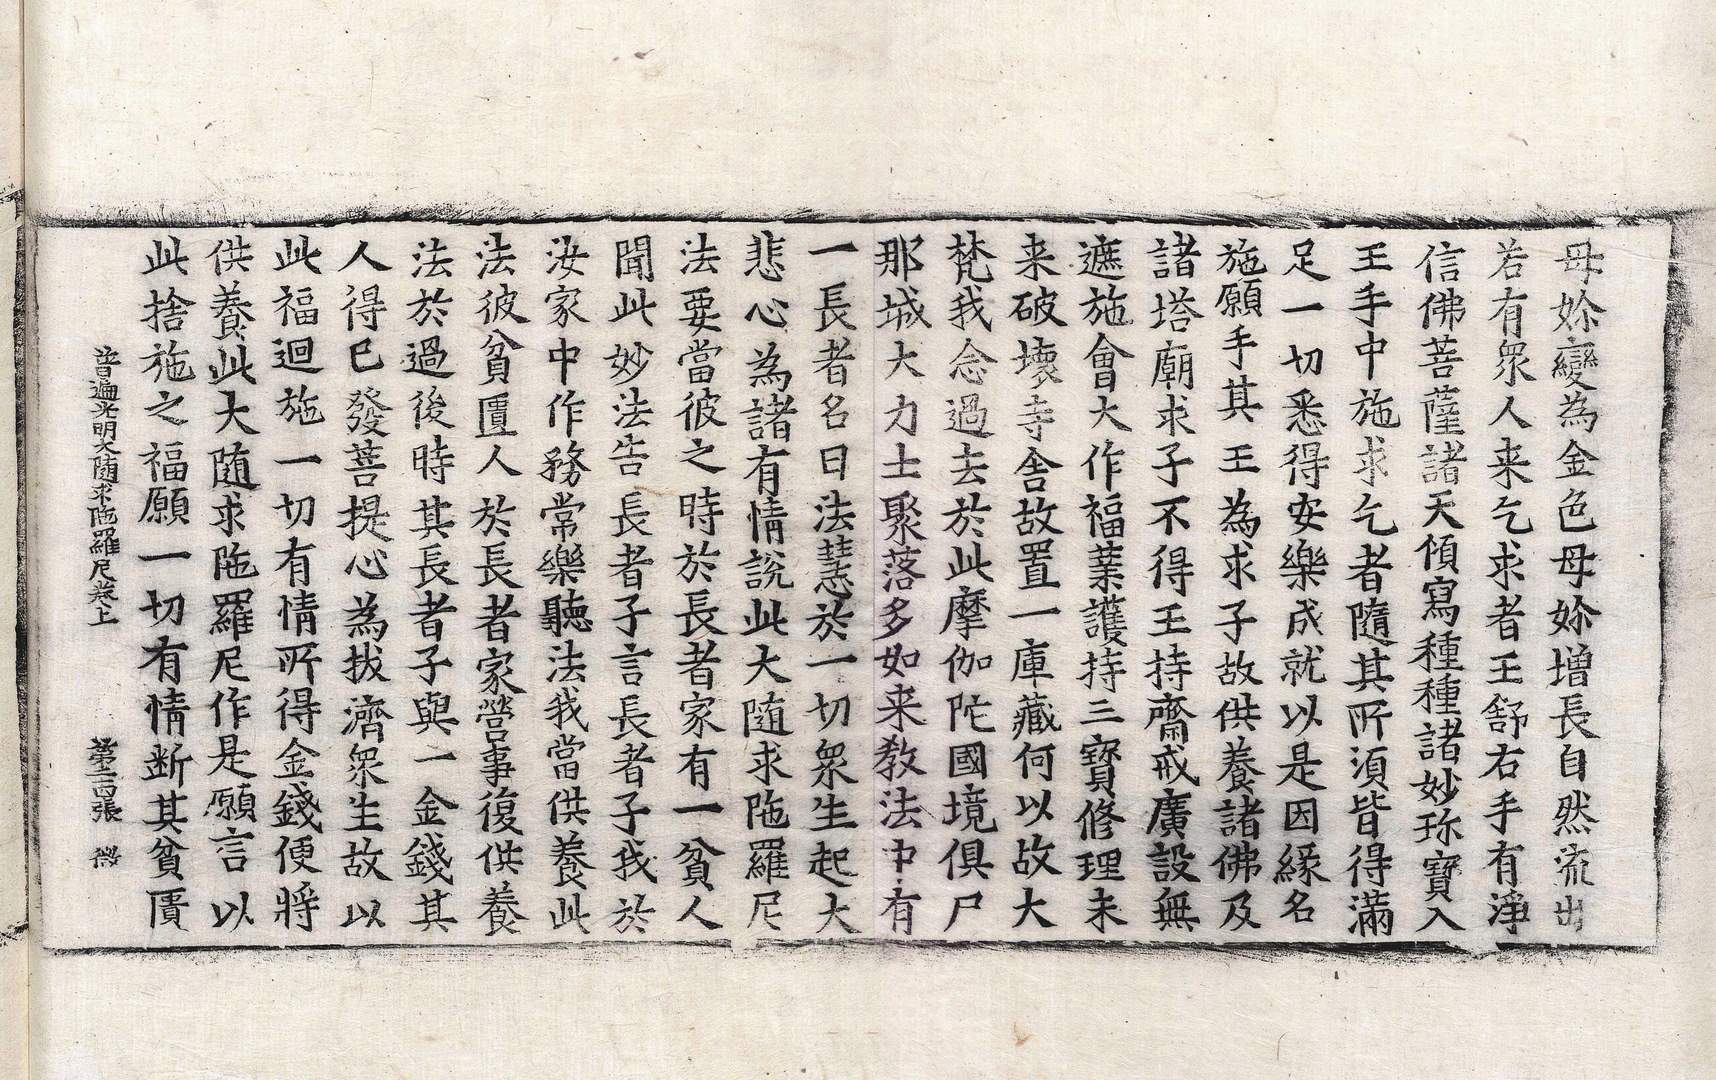 母妳變為金色母妳增長自然流出
若有衆人来乞求者王舒右手有淨
信佛菩薩諸天傾寫種種諸妙珎寶入
王手中施求乞者隨其所湏皆得滿
足一切悉得安樂成就以是因緣名
施願手其王為求子故供養諸佛及
諸塔廟求子不得王持齋戒廣設無
遮施會大作福業護持三寶修理未
来破壞寺舍故置一庫藏何以故大
梵我念過去於此摩伽陀國境俱尸
那城大力士聚落多如来教法中有
一長者名曰法慧於一切衆生起大
悲心為諸有情說此大随求陁羅尼
法要當彼之時於長者家有一貧人
聞此妙法告長者子言長者子我於
汝家中作務常樂聽法我當供養此
法彼貧匱人於長者家營事復供養
法於過後時其長者子與一金錢其
人得已發菩提心為拔濟衆生故以
此福迴施一切有情所得金錢便將
供養此大随求陁羅尼作是願言以
此捨施之福願一切有情断其貧匱
普遍光明大随求陁羅尼卷上 第二古張 微